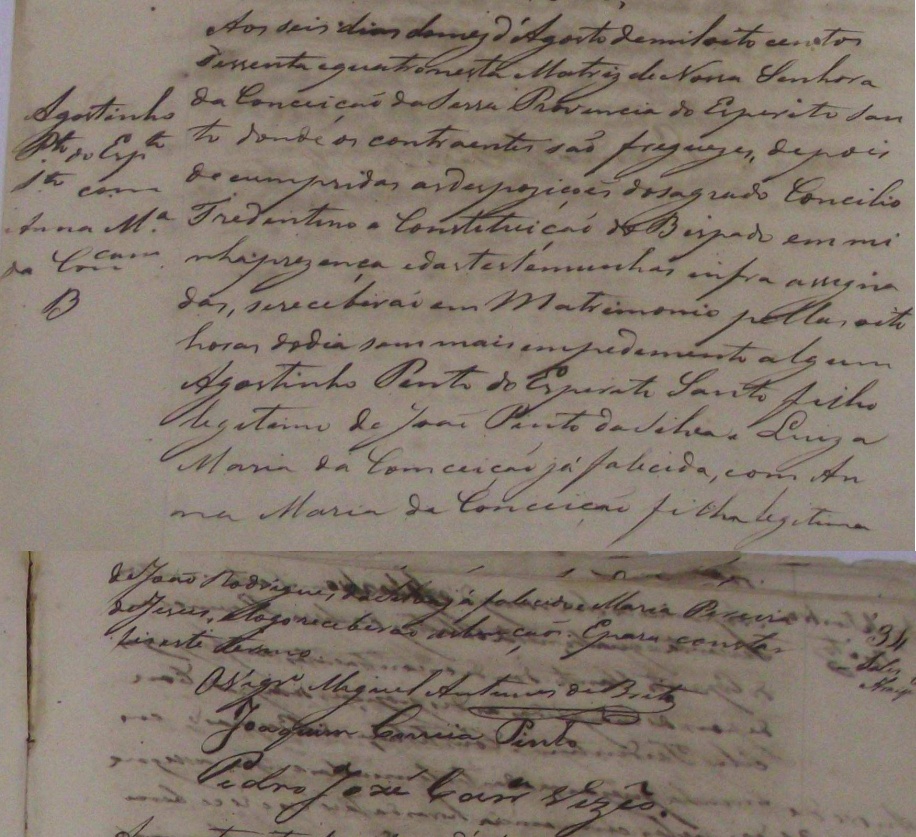 Agostinho
Pto do Espto
Sto com
Anna Ma.
da Concam
B
Aos seis dias do mez d'Agosto de mil oito centos
sessenta e quatro nesta Matriz de Nossa Senhora
da Conceição da Serra Provencia do Esperito San
to donde os contraentes são freguezes, depois
de cumpridas as desposições do sagrado Concilio
Tredentino e Constituição do Bispado em mi
nha prezença e das testemunhas infra assigna
das, se receberão em Matrimonio pellas oito
horas do dia sem mais empedemento algum
Agostinho Pinto do Esperito Santo filho
legitimo de João Pinto da Silva e Luiza
Maria da Conceição já falicida, com An
na Maria da Conceição filha legitima
de João Rodrigues já falicido e Maria Pereira
de Jesus, e logo receberão as bençãos. E para constar
fiz este termo
O Vigro Miguel Antunes de Brito
Joaquim Correia Pinto
Pedro José
34